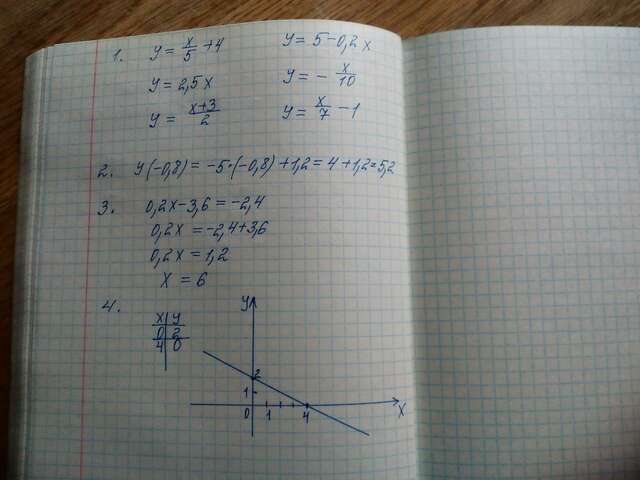 1. y = x/5 + 4 y = 5 - 0,2x
y = 2,5x y = - x/10
y = x+3/2 y = x/7 - 1
2. y(-0,8) = -5·(-0,8) + 1,2 = 4 + 1,2 = 5,2
3. 0,2x - 3,6 = -2,4
0,2x = -2,4 + 3,6
0,2x = 1,2
x = 6
4. y
x y
0 2
4 0
2
1
0 1 4 x